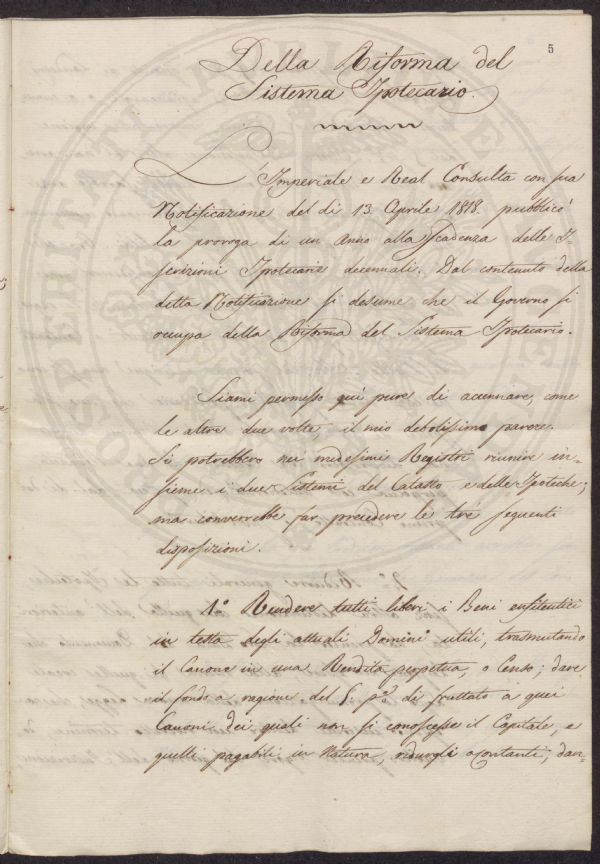 5
Della Riforma del
Sistema Ipotecario.
L'Imperiale e Real Consulta con sua
Notificazione del di 13. Aprile 1818. pubblicò
la proroga di un Anno alla scadenza delle I-
scrizioni Ipotecarie decennali. Dal contenuto della
detta Notificazione si desume che il Governo si
occupa della Riforma del Sistema Ipotecario.
Siami permesso quì pure di accennare, come
le altre due volte il mio debolissimo parere.
Si potrebbero nei medesimi Registri riunire in-
sieme i due Sistemi del Catasto e delle Ipoteche;
ma converrebbe far precedere le tre seguenti
disposizioni.
1.° Rendere tutti liberi i Beni enfiteutici
in testa degli attuali Domini utili, trasmutando
il Canone in una Rendita perpetua, o Censo; dare
il fondo a ragione del 5. p.% di fruttato a quei
Canoni dei quali non si conoscesse il Capitale, e
quelli pagabili in Natura, ridurgli a contanti; dan-